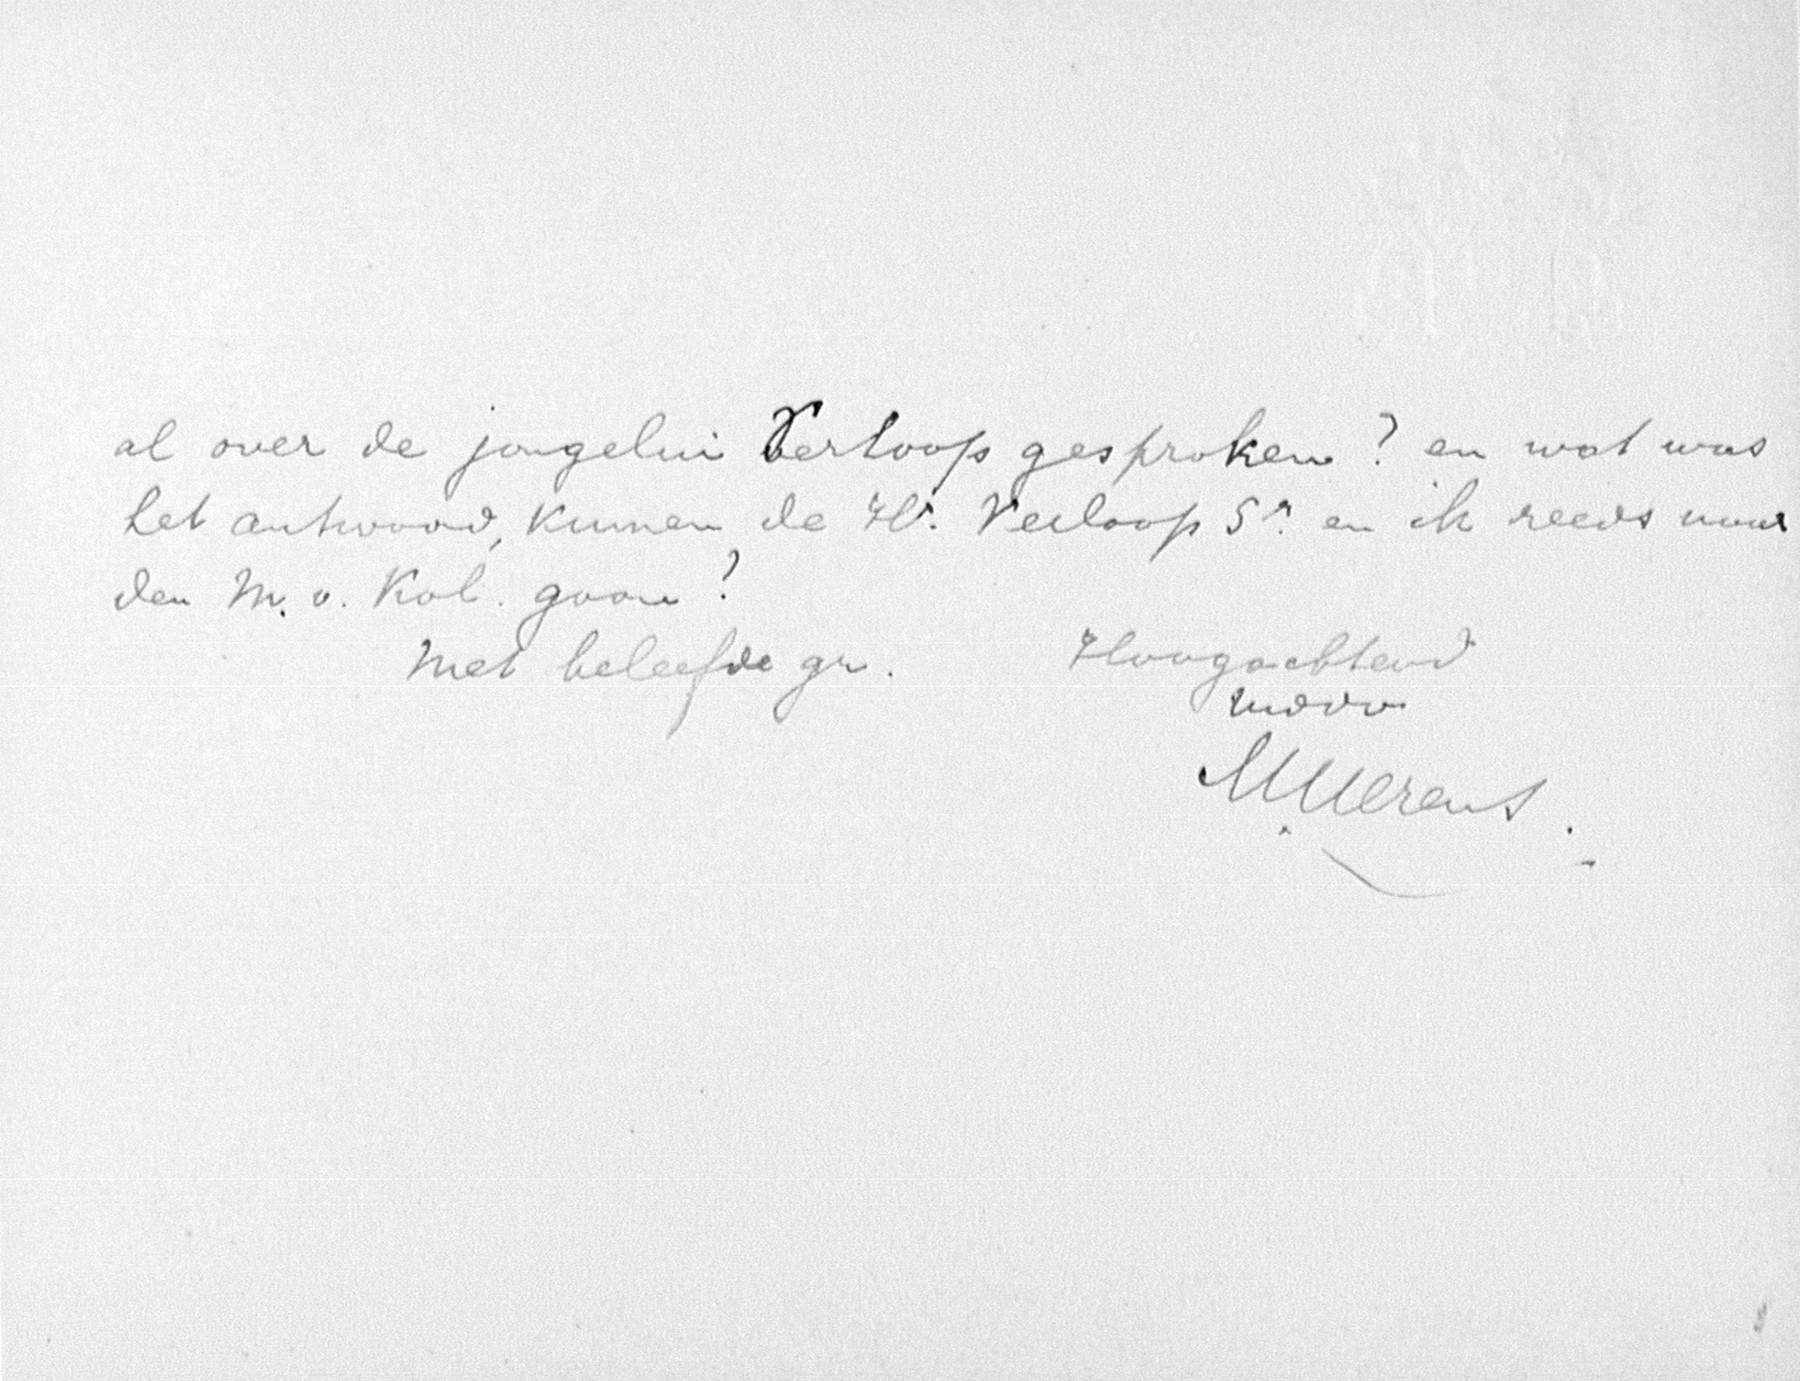 al over de jongelui Verloop gesproken? en wat was
het antwoord, kunnen de Hr. Verloop Sr. en ik reeds naar
den M. v. Kol. gaan?
Met beleefde gr. Hoogachtend
Uwdv
MMerens.